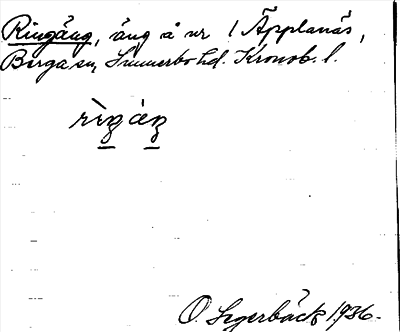 Ringäng, äng å nr 1 Äpplanäs,
Berga sn, Sunnerbo hd. Kronob. l.
rìgág
O. Segerbäck 1936.